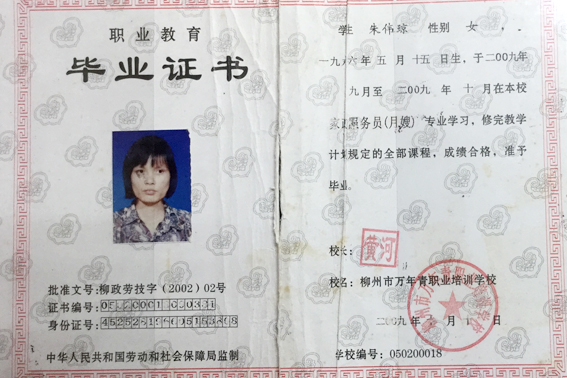 职业教育
毕业证书
批准文号:柳政劳技字(2002)02号
证书编号:
身份证号:
中华人民共和国劳动和社会保障局监制
学生 朱伟琼 性别 女
一九六六年五月十五日生,于二00九年
九月至二00九年十月在本校
家政服务员(月嫂)专业学习,修完教学
计划规定的全部课程,成绩合格,准予
毕业。
校长:黄河
校名:柳州市万年青职业培训学校
二00九年 月 日
学校编号:050200018